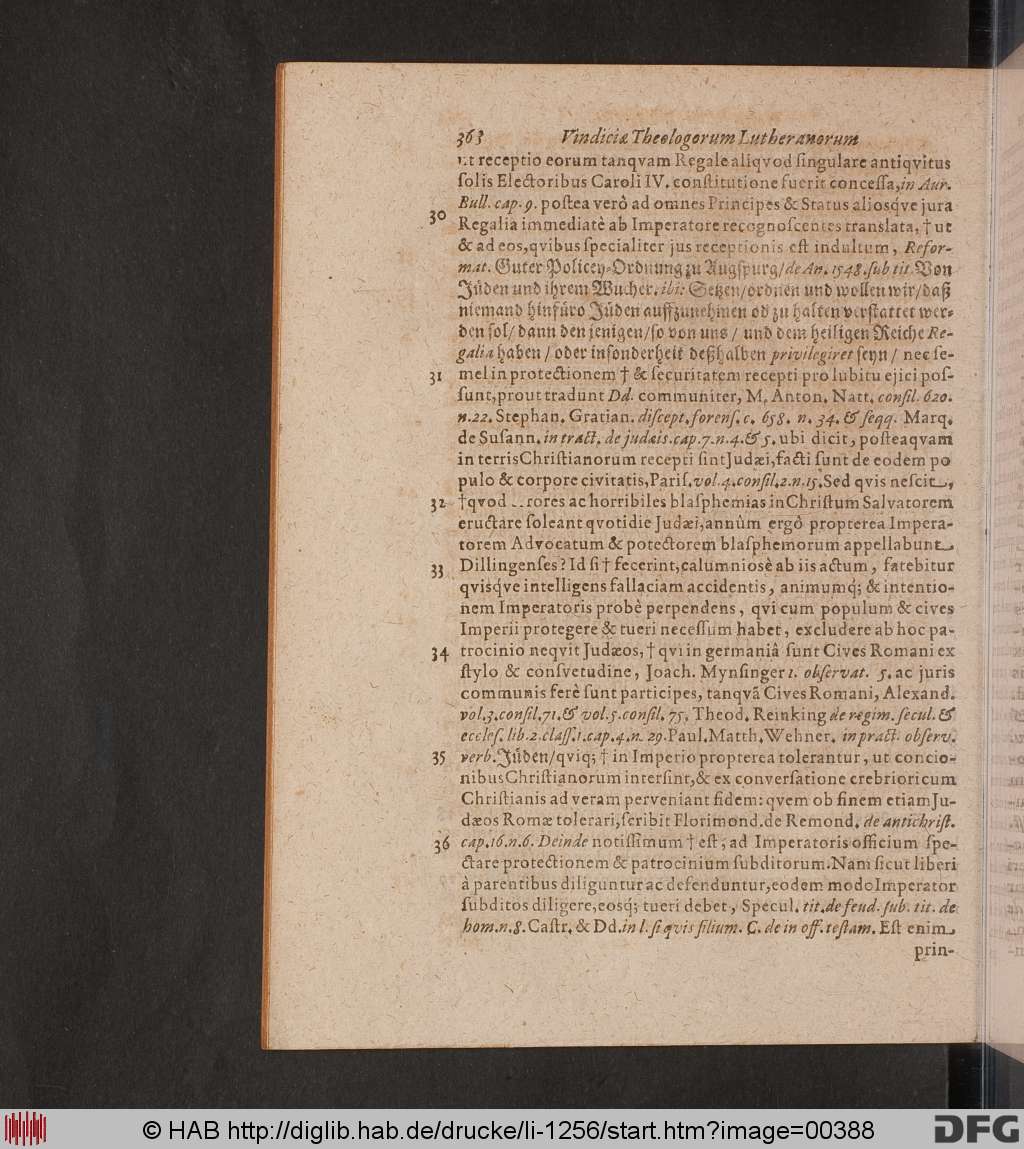 363 Vindiciæ Theologorum Lutheranorum
ut receptio eorum tanqvam Regale aliqvod ſingulare antiqvitus
ſolis Electoribus Caroli IV. conſtitutione fuerit conceſſa, in Aur.
Bull. cap. 9. poſtea verò ad omnes Principes & Status aliosqve jura
30 Regalia immediatè ab Imperatore recognoſcentes translata, † ut
& ad eos, qvibus ſpecialiter jus receptionis eſt indultum, Refor-
mat. Guter Policey-Ordnung zu Augſpurg/ de An. 1548. ſub tit. Von
Jüden und ihrem Wucher. ibi: Setzen/ ordnen und wollen wir/ daß
niemand hinfüro Jüden auffzunehmen od zu halten verſtattet wer-
den ſol/ dann den jenigen/ ſo von uns / und dem heiligen Reiche Re-
galia haben / oder inſonderheit deßhalben privilegiret ſeyn / nec ſe-
31 mel in protectionem † & ſecuritatem recepti pro lubitu ejici poſ-
ſunt, prout tradunt Dd. communiter, M. Anton. Natt. conſil. 620.
n. 22. Stephan. Gratian. diſcept. forenſ. c. 658. n. 34. & ſeqq. Marq.
de Suſann. in tract. de judæis. cap. 7. n. 4. & 5. ubi dicit, poſteaqvam
in terris Chriſtianorum recepti ſint Judæi, facti ſunt de eodem po
pulo & corpore civitatis, Pariſ. vol. 4. conſil. 2. n. 15. Sed qvis neſcit,
32 † qvod rores ac horribiles blaſphemias in Chriſtum Salvatorem
eructare ſoleant qvotidie Judæi, annûm ergò propterea Impera-
torem Advocatum & potectorem blaſphemorum appellabunt
33 Dillingenſes? Id ſi † fecerint, calumniosè ab iis actum, fatebitur
qvisqve intelligens fallaciam accidentis, animumq; & intentio-
nem Imperatoris probè perpendens, qvi cum populum & cives
Imperii protegere & tueri neceſſum habet, excludere ab hoc pa-
34 trocinio neqvit Judæos, † qvi in germaniâ ſunt Cives Romani ex
ſtylo & conſvetudine, Joach. Mynſinger 1. obſervat. 5. ac juris
communis ferè ſunt participes, tanqvã Cives Romani, Alexand.
vol. 3. conſil. 71. & vol. 5. conſil. 75. Theod. Reinking de regim. ſecul. &
eccleſ. lib. 2. claſſ. 1. cap. 4. n. 29. Paul. Matth. Wehner. in pract. obſerv.
35 verb. Jüden/ qviq; † in Imperio propterea tolerantur, ut concio-
nibus Chriſtianorum interſint, & ex converſatione crebriori cum
Chriſtianis ad veram perveniant fidem: qvem ob finem etiam Ju-
dæos Romæ tolerari, ſcribit Florimond. de Remond. de antichriſt.
36 cap. 16. n. 6. Deinde notiſſimum † eſt, ad Imperatoris officium ſpe-
ctare protectionem & patrocinium ſubditorum. Nam ſicut liberi
à parentibus diliguntur ac defenduntur, eodem modo Imperator
ſubditos diligere, eosq; tueri debet, Specul. tit. de feud. ſub. tit. de
hom. n. 8. Caſtr. & Dd. in l. ſi qvis filium. C. de in off. teſtam. Eſt enim
prin-
© HAB http://diglib.hab.de/drucke/li-1256/start.htm?image=00388
DFG